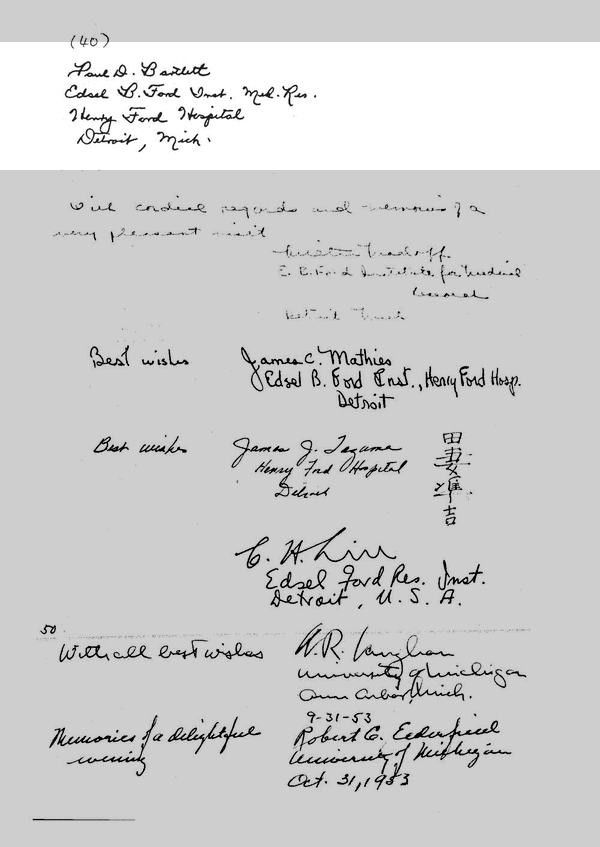 (40)
Paul D. Bartlett
Edsel B. Ford Inst. Med. Res.
Henry Ford Hospital
Detroit, Mich.
With cordial regards and memories of a
very pleasant visit
E. B. Ford Institute for Medical
Research
Detroit
Best wishes James C. Mathies
Edsel B. Ford Inst., Henry Ford Hosp.
Detroit
Best wishes James J. Tazuma
Henry Ford Hospital
Detroit
田
準
吉
Edsel Ford Res. Inst.
Detroit, U. S. A.
50
With all best wishes A. R. Vaughan
University of Michigan
Ann Arbor, Mich.
9-31-53
Memories of a delightful Robert C. Elderfield
evening University of Michigan
Oct. 31, 1953